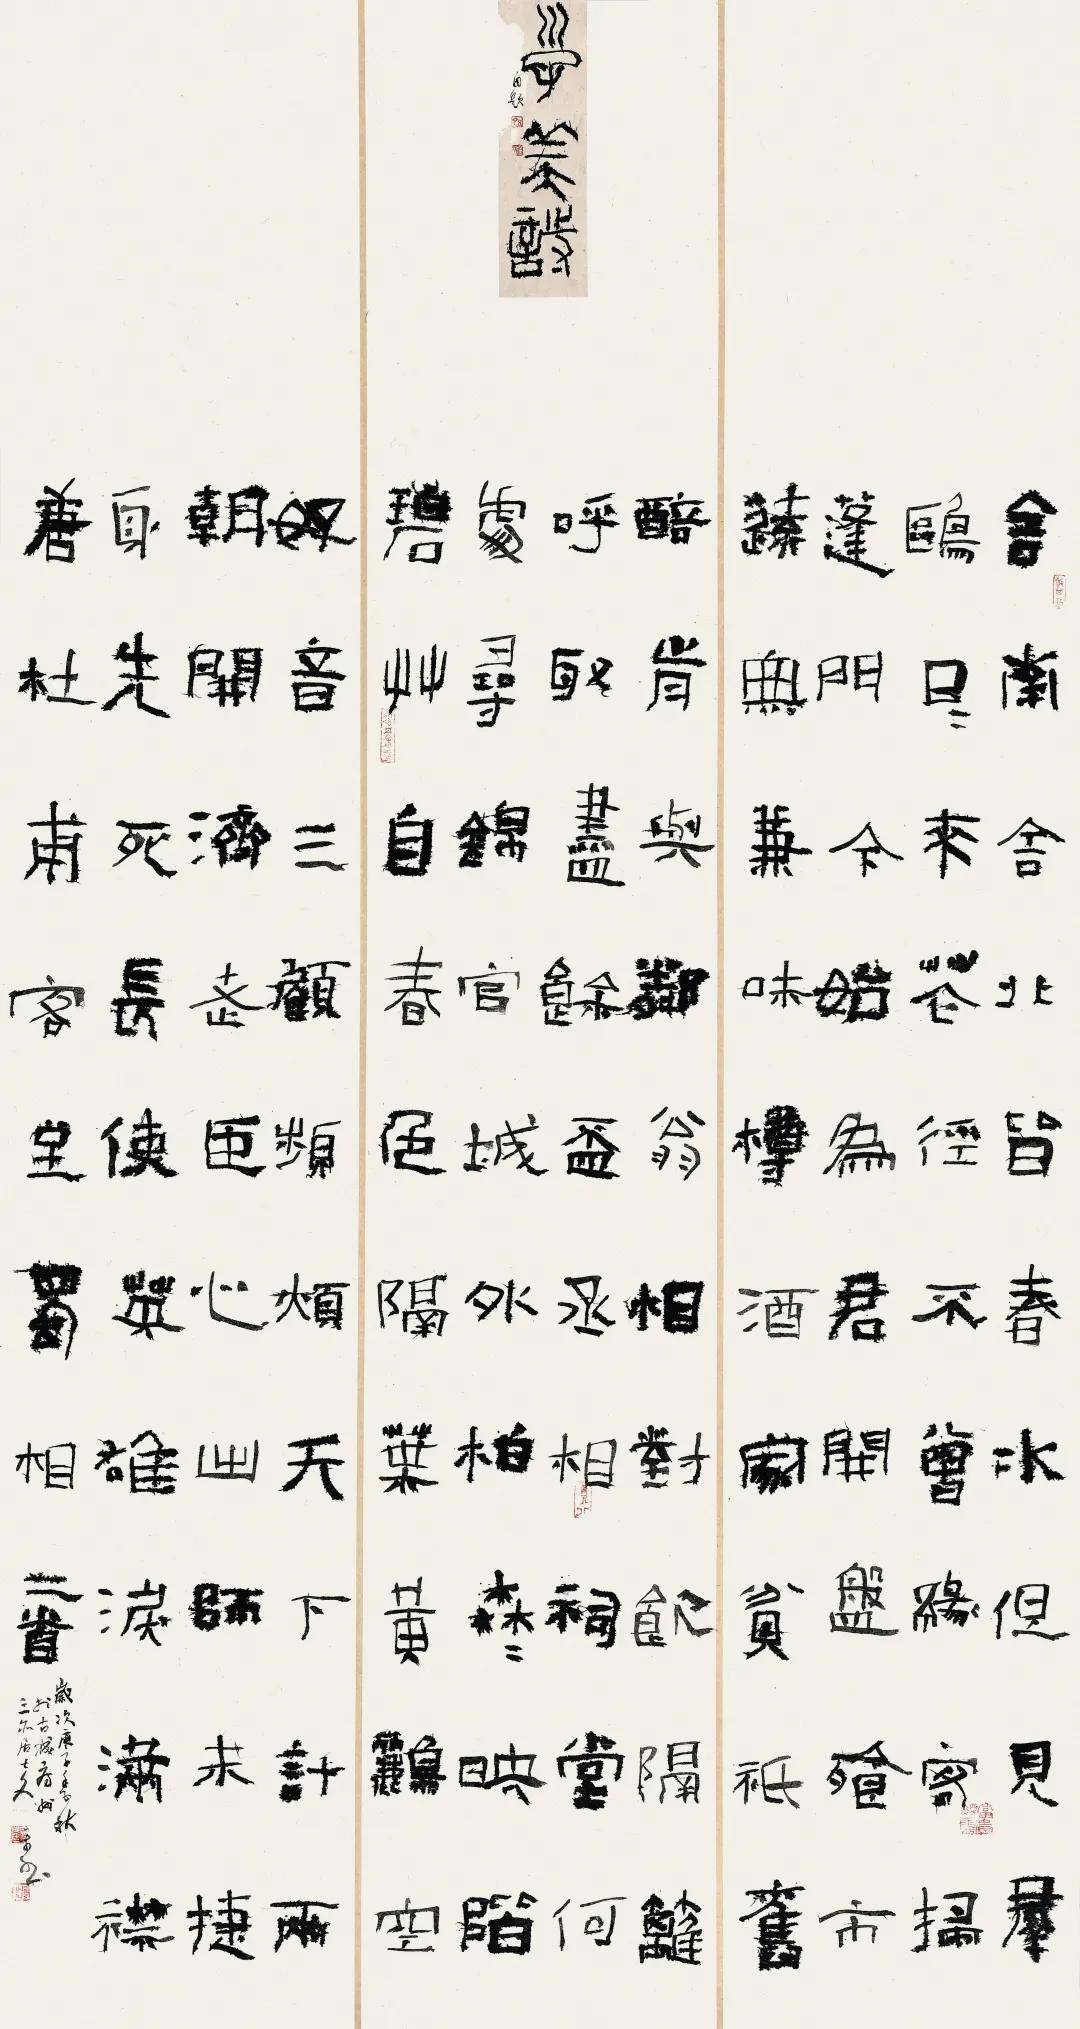 子美詩
舍南舍北皆春水但見群
鷗日〻來花徑不曾緣客掃
蓬門今始為君開盤飧市
遠無兼味樽酒家貧祗舊
醅肯與鄰翁相對飲隔籬
呼取盡餘盃丞相祠堂何
處尋錦官城外柏森〻映階
碧艸自春色隔葉黃鸝空
好音三顧頻煩天下計兩
朝開濟老臣心出師未捷
身先死長使英雄淚滿襟
唐杜甫客至蜀相二首
歲次庚子